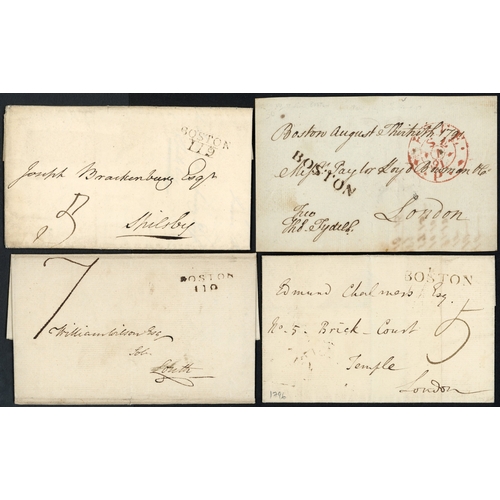 BOSTON
119
Joseph Brackenbury Esqr
5
Spilsby
Boston August Thirtieth
BOSTON
London
Free
Thos. Fydell
7
BOSTON
119
William Wilson Esq
Louth
BOSTON
Edmund Chalmers Esq.
5
No. 5 Brick-Court
Temple
London
1796